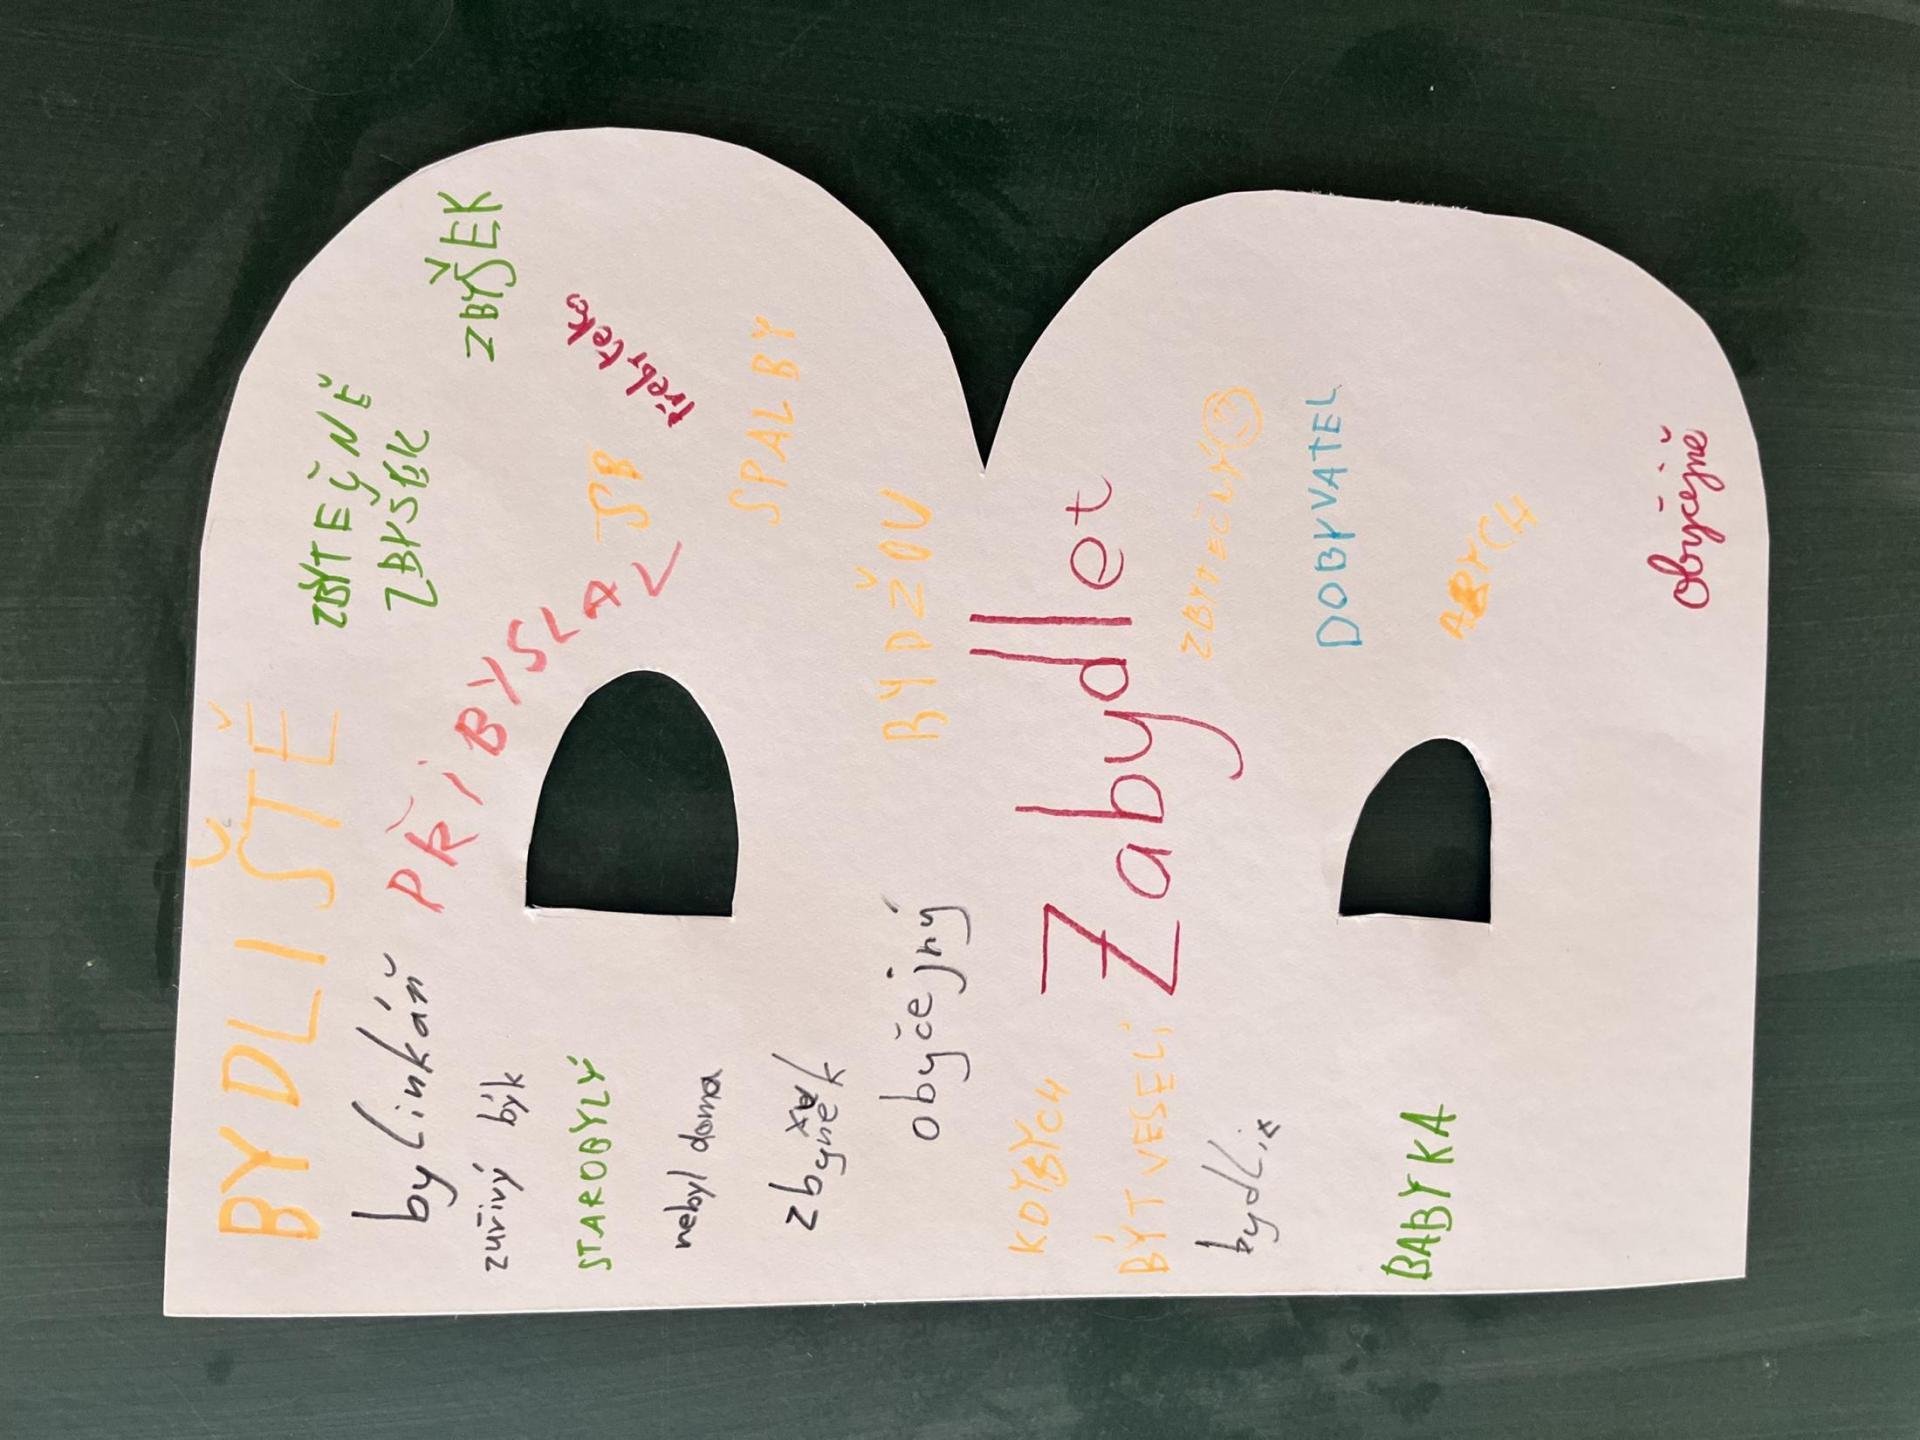 BYDLIŠTĚ
ZBYTEČNĚ
ZBYSEK
ZBYŠEK
bylinkář
PŘIBYSLAV
zuřivý býk
třebyteko
STAROBYLÝ
SPALBY
nebyl doma
zbyněk
BYDŽOV
obyčejný
Zabydlet
KDYBYCH
BÝT VESELÍ
ZBYTEČNÝ
bydlix
DOBYVATEL
BABYKA
ABYCH
obyčejně